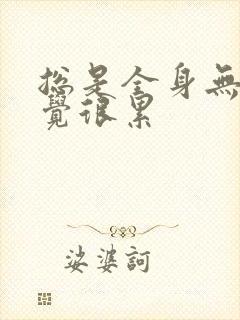 總是全身無
覺很累
娑婆訶